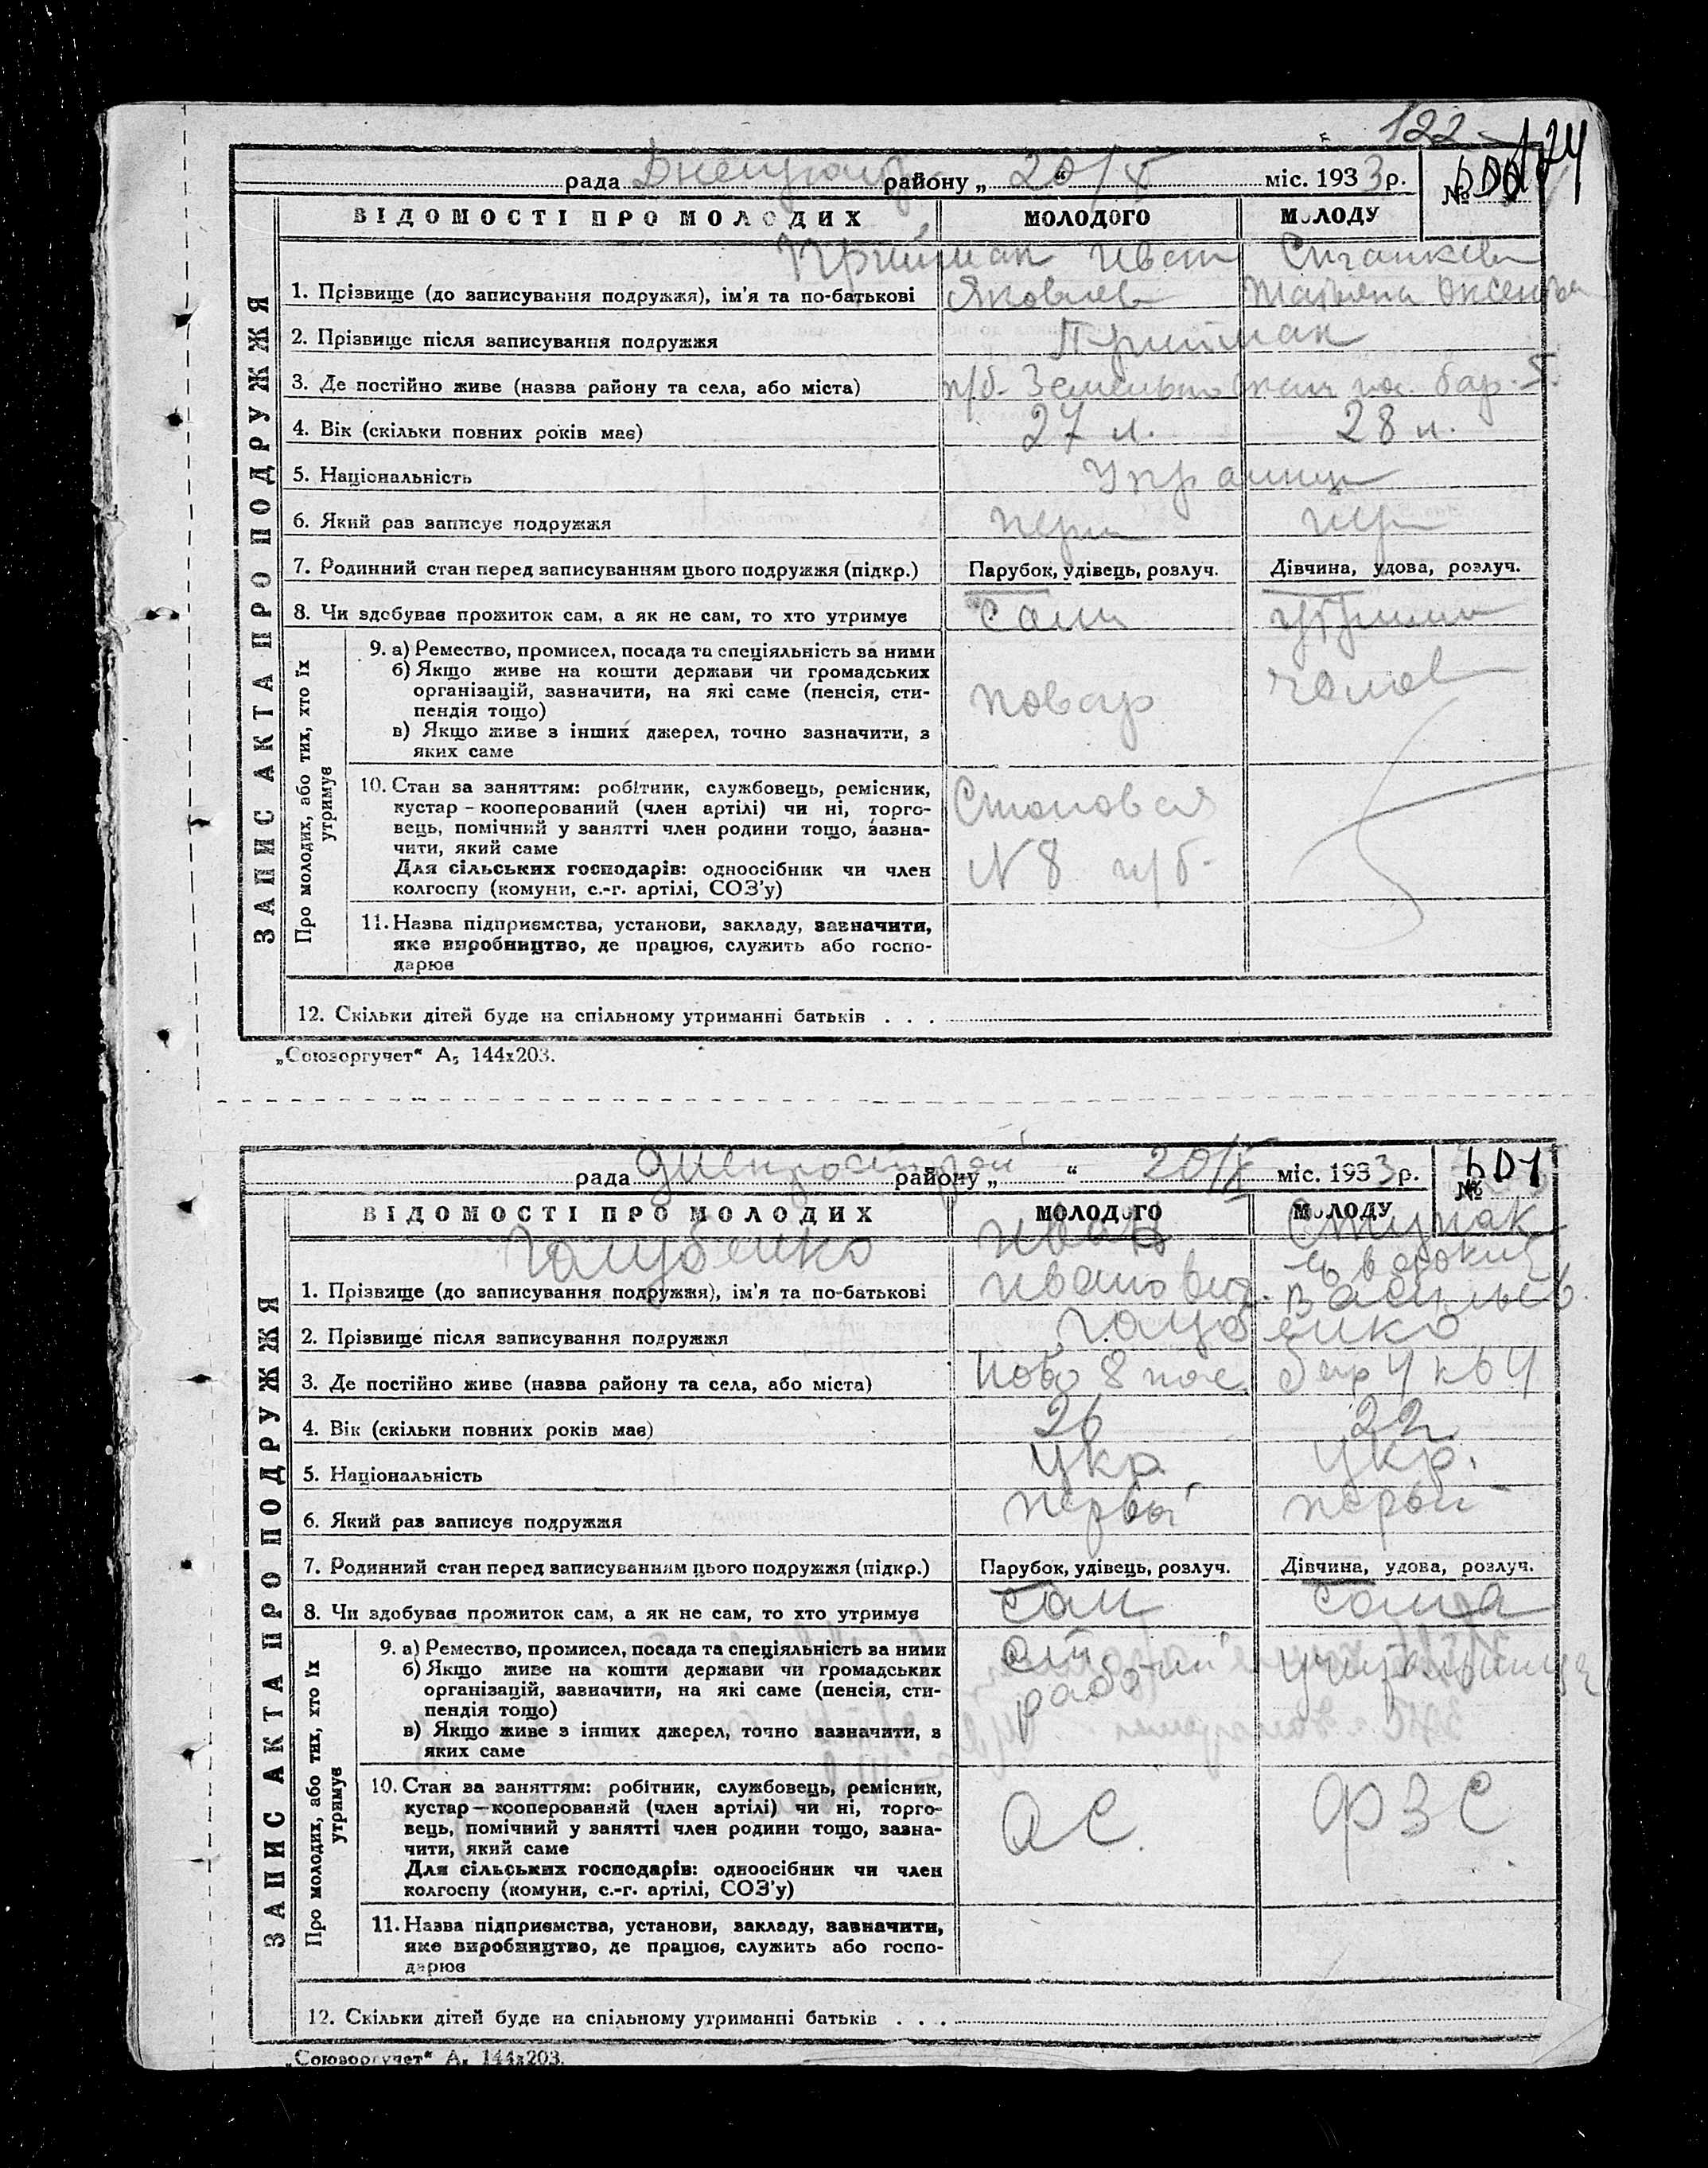 122
рада района „ 20/X “ міс. 1933 р. №
ВІДОМОСТІ ПРО МОЛОДИХ МОЛОДОГО МОЛОДУ
Прийман Иван
1. Прізвище (до записування подружжя), ім'я та по-батькові Яковлев Татьяна
2. Прізвище після записування подружжя Прийман
3. Де постійно живе (назва району та села, або міста) п/б. бар. 5.
4. Вік (скільки повних років має) 27 л. 28 л.
5. Національність Украинцы
6. Який раз записує подружжя перв пер
7. Родинний стан перед записуванням цього подружжя (підкр.) Парубок, удівець, розлуч. Дівчина, удова, розлуч.
8. Чи здобуває прожиток сам, а як не сам, то хто утримує Сам
ЗАПИС АКТА ПРО ПОДРУЖЖЯ
Про молодих, або тих, хто їх утримує
9. а) Ремество, промисел, посада та спеціяльність за ними
б) Якщо живе на кошти держави чи громадських
організацій, зазначити, на які саме (пенсія, сти-
пендія тощо) повар
в) Якщо живе з інших джерел, точно зазначити, з
яких саме
10. Стан за заняттям: робітник, службовець, ремісник,
кустар – кооперований (член артілі) чи ні, торго- Столовая
вець, помічний у занятті член родини тощо, зазна-
чити, який саме
Для сільських господарів: одноосібник чи член N 8 п/б.
колгоспу (комуни, с.-г. артілі, СОЗ'у)
11. Назва підприємства, установи, закладу, зазначити,
яке виробництво, де працює, служить або госпо-
дарює
12. Скільки дітей буде на спільному утриманні батьків . . .
„Союзоргучет“ А5 144х203.
рада Днепрострой району „ “ 20/X міс. 1933 р. №
ВІДОМОСТІ ПРО МОЛОДИХ МОЛОДОГО МОЛОДУ
Голубенко Иван Ступак
1. Прізвище (до записування подружжя), ім'я та по-батькові Иванович. Васильев.
2. Прізвище після записування подружжя Голубенко
3. Де постійно живе (назва району та села, або міста) 8 пос. бар 4 кв 4
4. Вік (скільки повних років має) 26 22
5. Національність укр укр.
6. Який раз записує подружжя первый первый
7. Родинний стан перед записуванням цього подружжя (підкр.) Парубок, удівець, розлуч. Дівчина, удова, розлуч.
8. Чи здобуває прожиток сам, а як не сам, то хто утримує сам сама
ЗАПИС АКТА ПРО ПОДРУЖЖЯ
Про молодих, або тих, хто їх утримує
9. а) Ремество, промисел, посада та спеціяльність за ними
б) Якщо живе на кошти держави чи громадських учительница
організацій, зазначити, на які саме (пенсія, сти-
пендія тощо)
в) Якщо живе з інших джерел, точно зазначити, з
яких саме
10. Стан за заняттям: робітник, службовець, ремісник,
кустар—кооперований (член артілі) чи ні, торго- ФЗС
вець, помічний у занятті член родини тощо, зазна-
чити, який саме
Для сільських господарів: одноосібник чи член
колгоспу (комуни, с.-г. артілі, СОЗ'у)
11. Назва підприємства, установи, закладу, зазначити,
яке виробництво, де працює, служить або госпо-
дарює
12. Скільки дітей буде на спільному утриманні батьків . . .
„Союзоргучет“ А5 144х203.